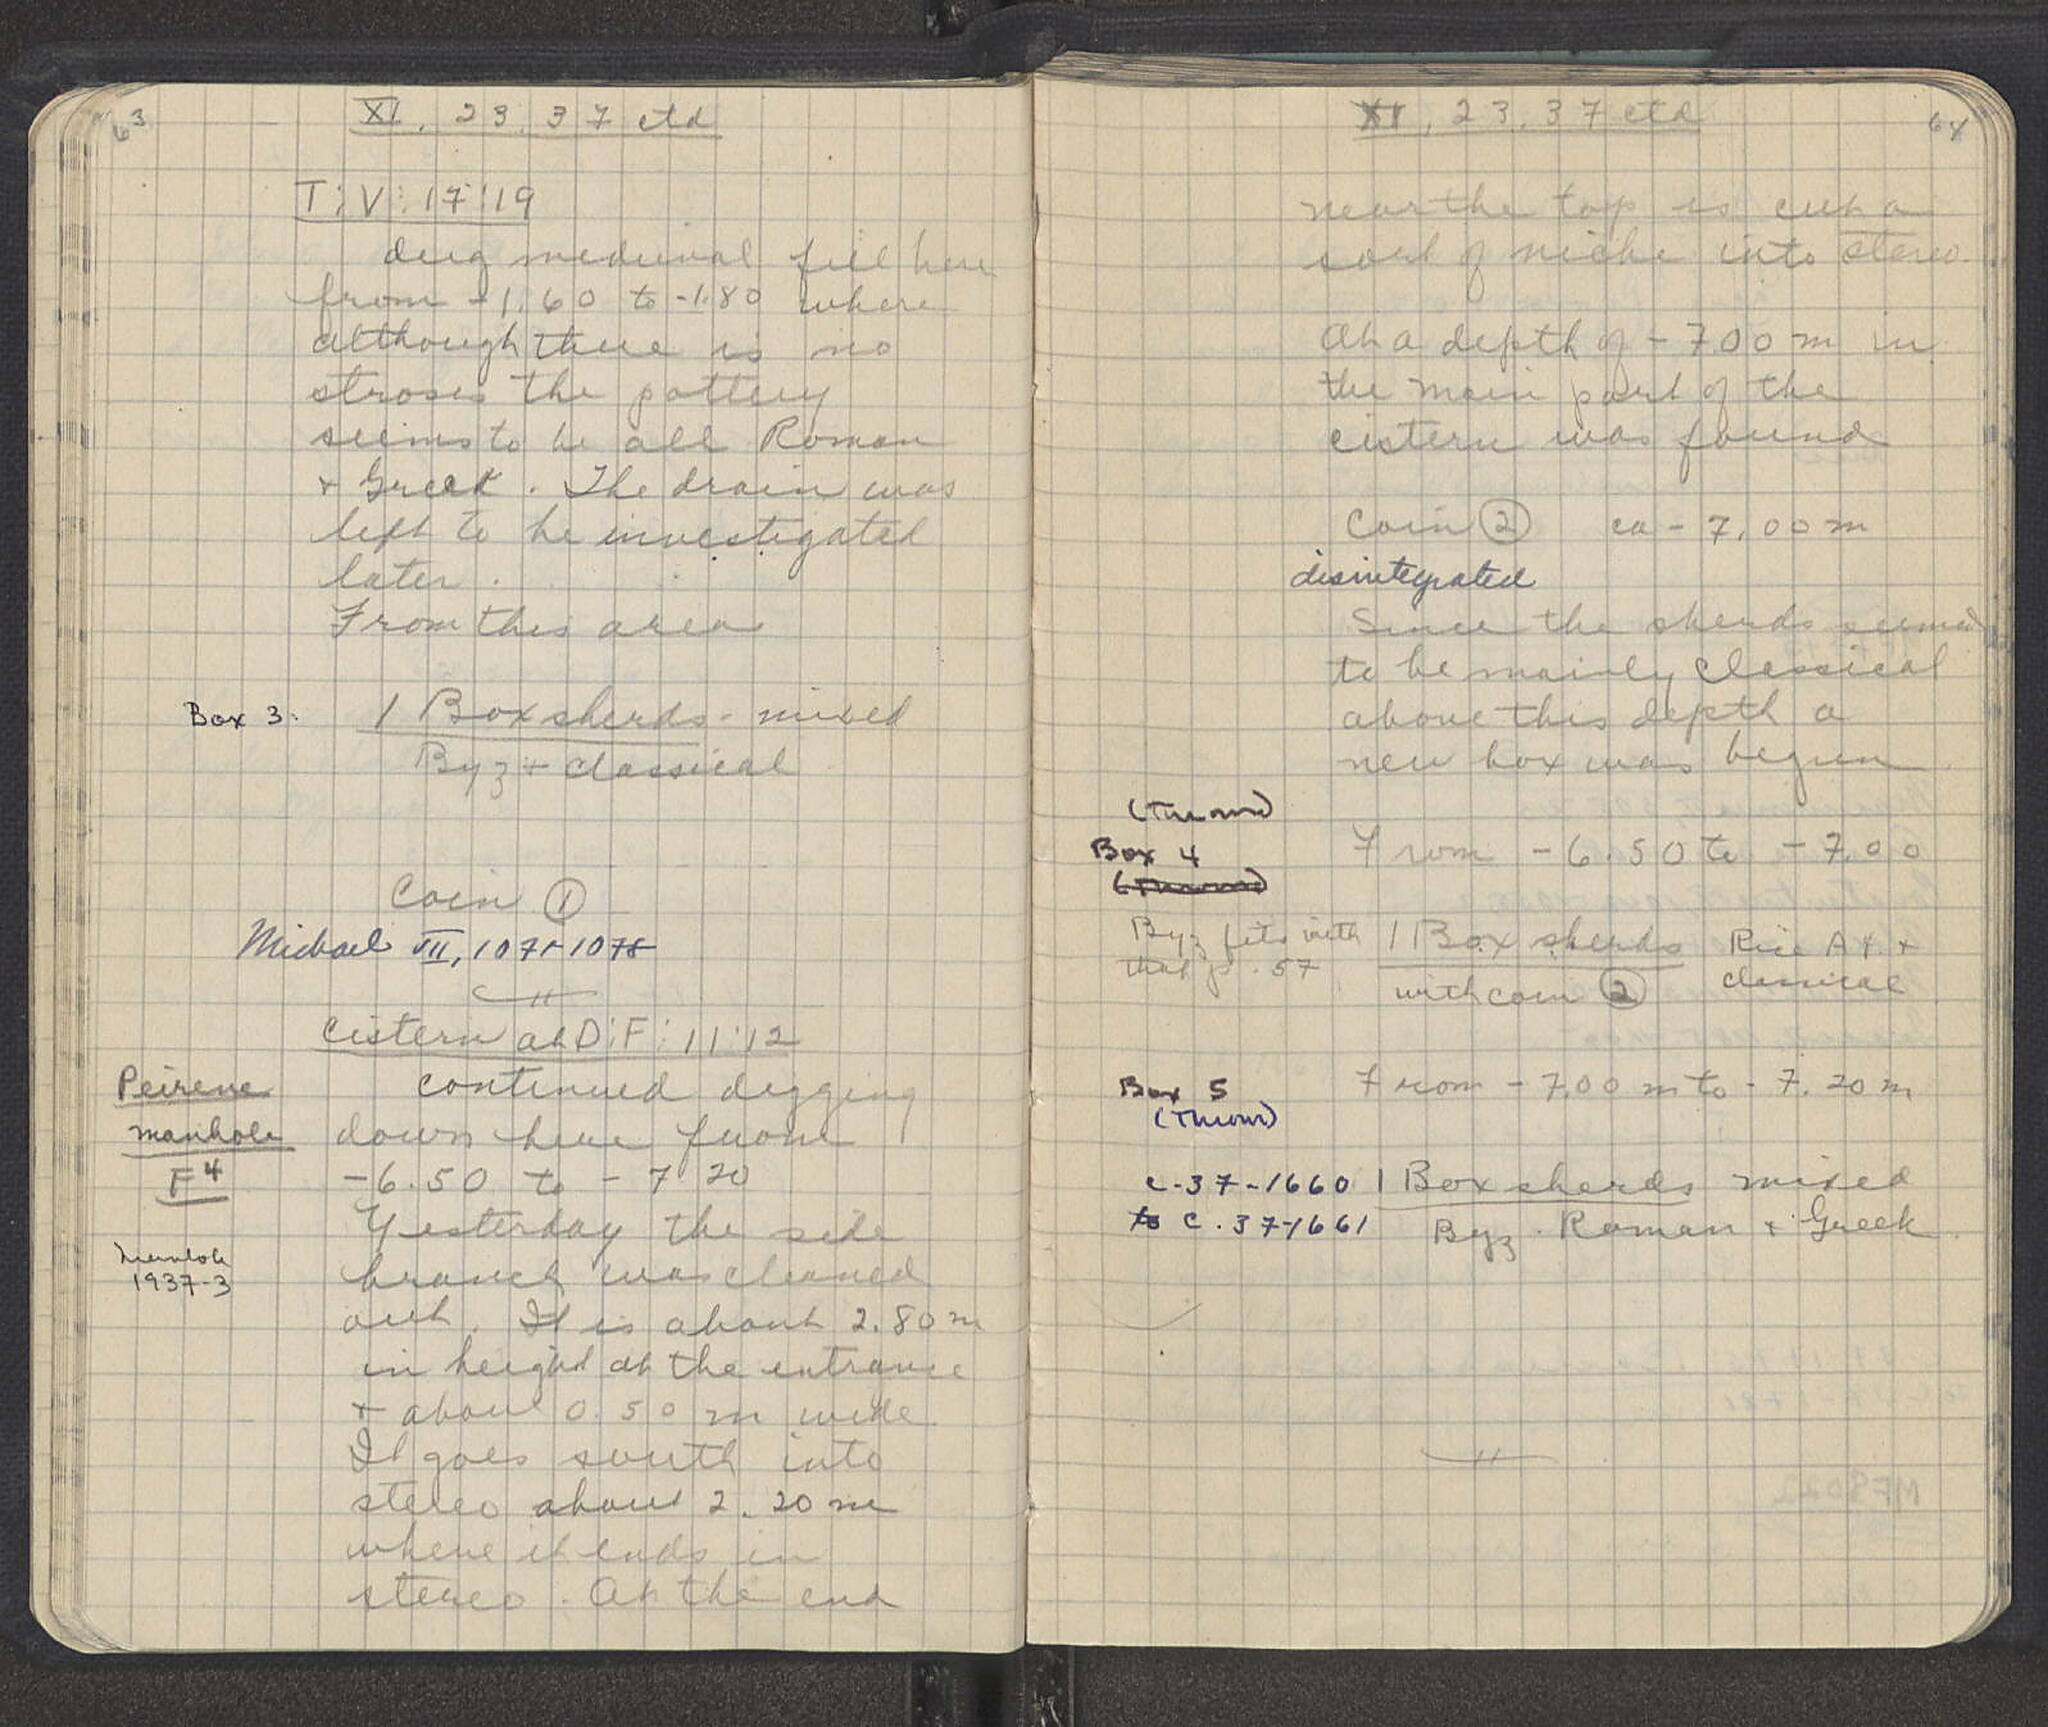 63
XI, 23, 37 ctd
T:V:17:19
dug medieval fill here
from -1.60 to -1.80 where
although there is no
stroses the pottery
seems to be all Roman
+ Greek. The drain was
left to be investigated
later.
From this area
Box 3: 1 Box sherds - mixed
Byz + classical
Coin ①
Michael VII, 1071-1078
Cistern at D:F:11:12
Peirene
manhole
F4
Manhole
1937-3
continued digging
down here from
-6.50 to -7 20
Yesterday the side
branch was cleaned
out. It is about 2.80 m
in height at the entrance
+ about 0.50 m wide
It goes south into
stereo about 2.20 m
where it ends in
stereo. At the end
64
XI, 23, 37 ctd
near the top is cut a
sort of niche into stereo.
At a depth of -7.00 m in
the main part of the
cistern was found
Coin ② ca -7.00 m
disintegrated
Since the sherds seemed
to be mainly classical
above this depth a
new box was begun
(Thrown)
Box 4 From -6.50 to -7.00
(Thrown)
Byz fits with
that p. 57
1 Box sherds Rice A4 +
with coin ② classical
Box 5 From -7.00 m to -7.20 m
(Thrown)
C-37-1660 1 Box sherds mixed
to C.37-1661 Byz. Roman + Greek.